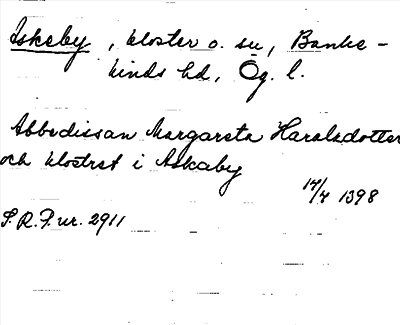 Askeby, kloster o. sn, Banke-
kinds hd, Ög. l.
Abbedissan Margareta Haraldsdotter
och klostret i Askaby
14/4 1398
S.R.P. nr. 2911